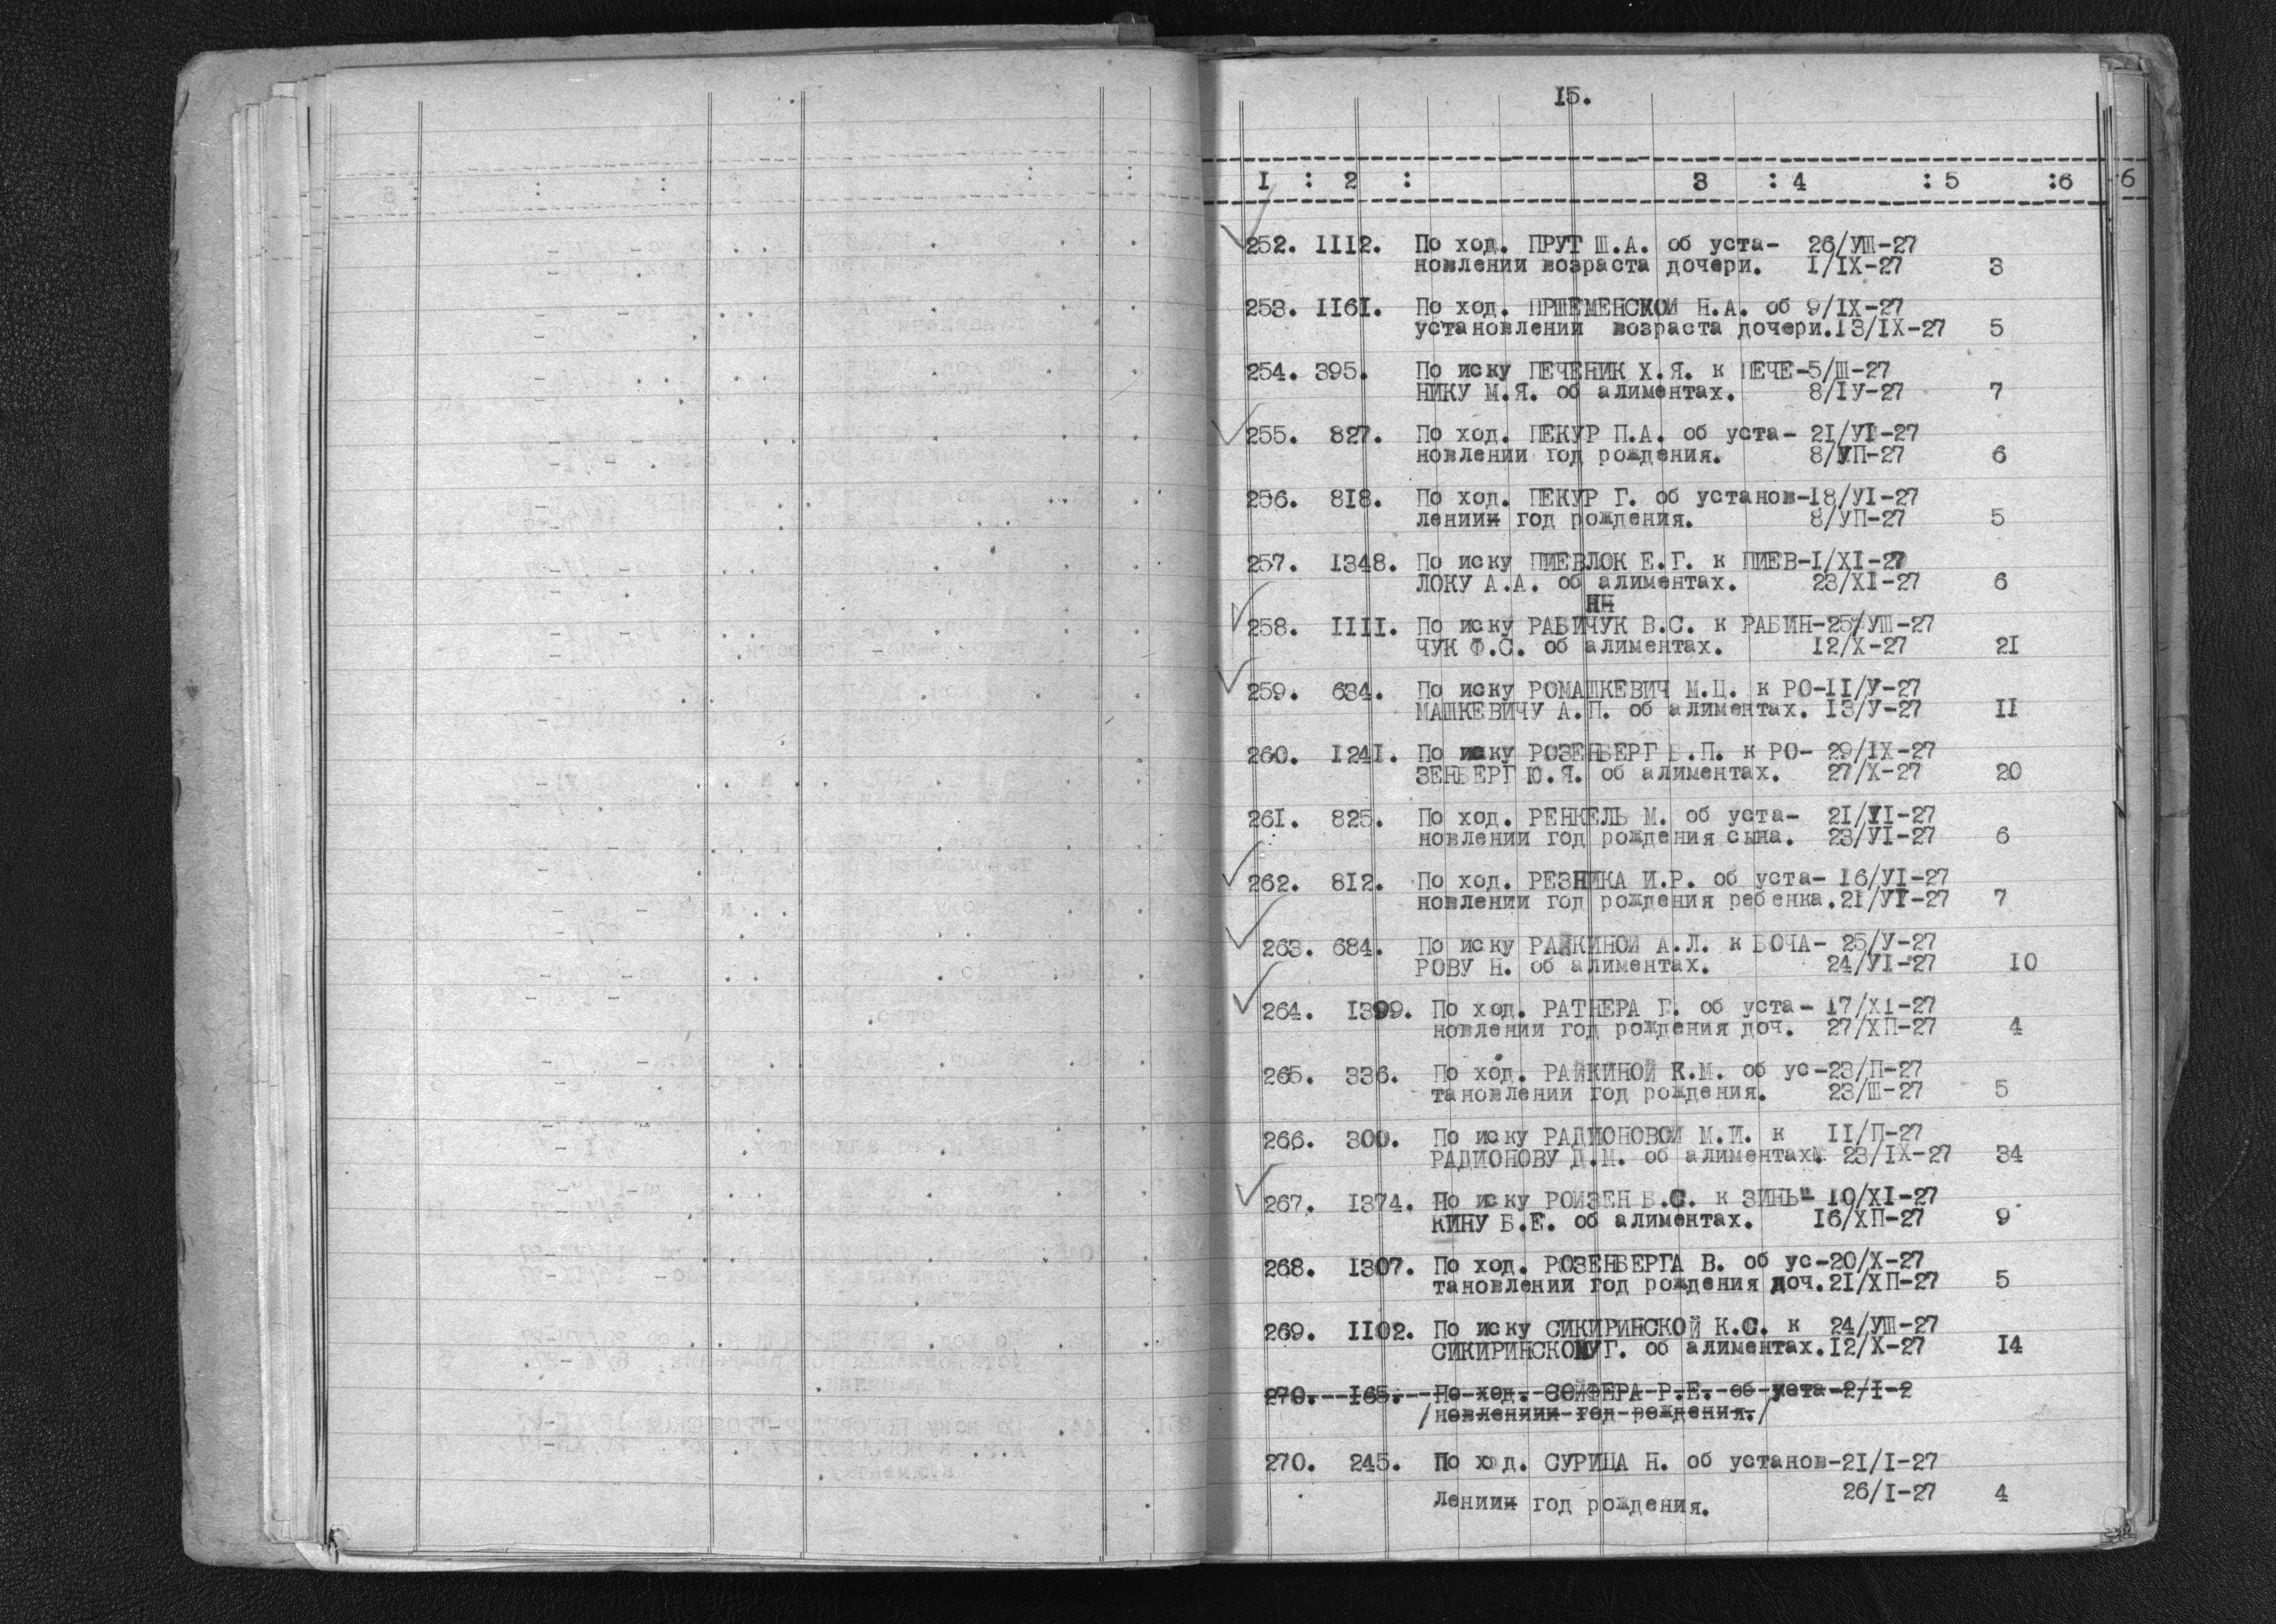 15.
1 : 2 : 3 : 4 : 5 :6 6
252. 1112. По ход. ПРУТ Ш.А. об уста- 26/УШ-27
новлении возраста дочери. 1/IX-27 3
253. 1161. По ход. ПРШЕМЕНСКОЙ Н.А. об 9/IX-27
установлении возраста дочери.13/IX-27 5
254. 395. По иску ПЕЧЕНИК Х.Я. к ПЕЧЕ-5/Ш-27
НИКУ М.Я. об алиментах. 8/IУ-27 7
255. 827. По ход. ПЕКУР П.А. об уста- 21/УI-27
новлении год рождения. 8/УП-27 6
256. 818. По ход. ПЕКУР Г. об установ-18/УI-27
лениии год рождения. 8/УП-27 5
257. 1348. По иску ПИЕВЛОК Е.Г. к ПИЕВ-1/XI-27
ЛОКУ А.А. об алиментах. 23/XI-27 6
НН
258. 1111. По иску РАБИЧУК В.С. к РАБИН-25/УШ-27
ЧУК Ф.С. об алиментах. 12/X-27 21
259. 634. По иску РОМАШКЕВИЧ М.Ц. к РО-11/У-27
МАШКЕВИЧУ А.П. об алиментах. 13/У-27 11
260. 1241. По иску РОЗЕНБЕРГ .П. к РО- 29/IX-27
ЗЕНБЕРГ Ю.Я. об алиментах. 27/X-27 20
261. 825. По ход. РЕНКЕЛЬ М. об уста- 21/УI-27
новлении год рождения сына. 23/УI-27 6
262. 812. По ход. РЕЗНИКА И.Р. об уста- 16/УI-27
новлении год рождения ребенка.21/УI-27 7
263. 684. По иску РАЙКИНОЙ А.Л. к БОЧА- 25/У-27
РОВУ Н. об алиментах. 24/УI-27 10
264. 1399. По ход. РАТНЕРА Г. об уста- 17/XI-27
новлении год рождения доч. 27/ХП-27 4
265. 336. По ход. РАЙКИНОЙ К.М. об ус-23/П-27
тановлении год рождения. 23/Ш-27 5
266. 300. По иску РАДИОНОВОЙ М.И. к 11/П-27
РАДИОНОВУ Д.М. об алиментах. 23/IX-27 34
267. 1374. По иску РОЙЗЕН В.С. к ЗИНЬ- 10/XI-27
КИНУ Б.Е. об алиментах. 16/ХП-27 9
268. 1307. По ход. РОЗЕНБЕРГА В. об ус-20/X-27
тановлении год рождения доч.21/ХП-27 5
269. 1102. По иску СИКИРИНСКОЙ К.С. к 24/УШ-27
СИКИРИНСКОМУ Г. об алиментах.12/X-27 14
270. 165. По ход. СОЙФЕРА Р.Е. об уста-2/I-2
/новлениии год рождения./
270. 245. По ход. СУРИЦА Н. об установ-21/I-27
лениии год рождения. 26/I-27 4